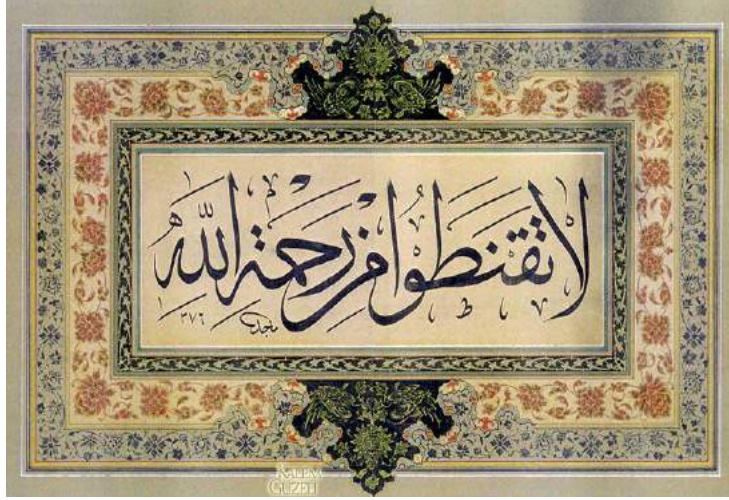 لا تقنطوا من رحمة الله
ماجد
٣٧٦
KALEM
GÜZELİ